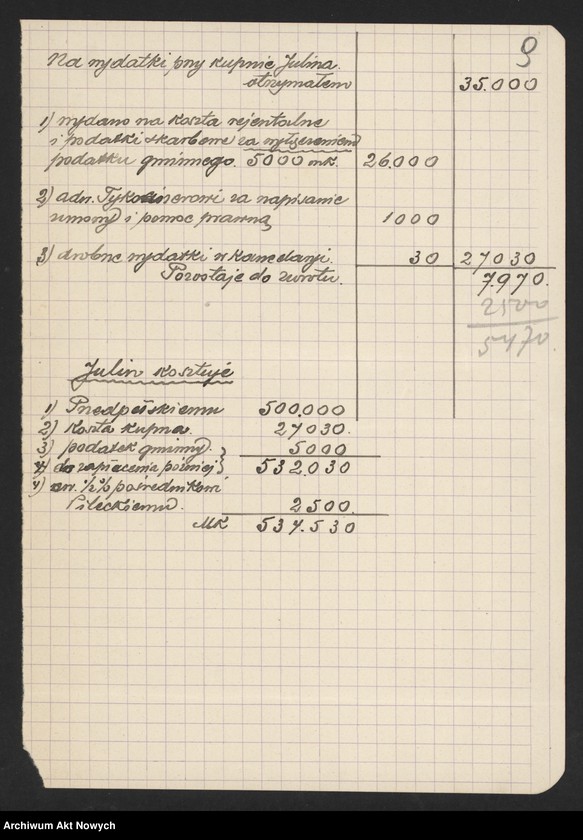 9
Na wydatki przy kupnie Julina
otrzymałem 35.000
1) wydano na koszta rejentalne
i podatki skarbowe za wyłączeniem
podatku gminnego 5000 mk. 26.000
2) adw. Tykocinerowi za napisanie
umowy i pomoc prawną 1000
3) drobne wydatki w kancelarji. 30 27030
Pozostaje do zwrotu. 7.970.
2500
5470
Julin kosztuje
1) Przedpełskiemu 500.000
2) koszta kupna. 27030.
3) podatek gminny. 5000
do zapłacenia później 532.030
4) 1/2% pośrednikowi
Pileckiemu. 2500.
Mk 534.530
Archiwum Akt Nowych